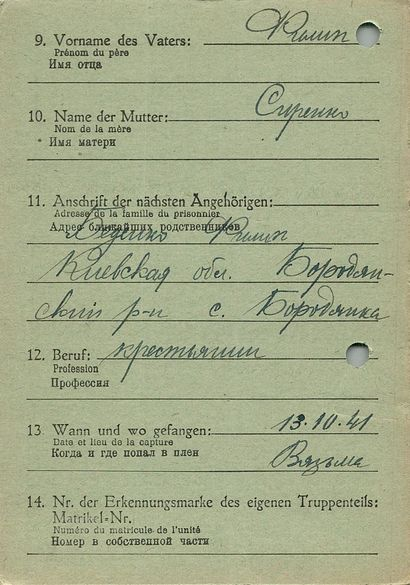 9. Vorname des Vaters: Климп
Prénom du père
Имя отца
10. Name der Mutter: Сиренко
Nom de la mère
Имя матери
11. Anschrift der nächsten Angehörigen:
Adresse de la famille du prisonnier
Адрес ближайших родственников
Климп
Киевская обл. Бородян-
ский р-н с. Бородянка
12. Beruf: крестьянин
Profession
Профессия
13. Wann und wo gefangen: 13.10.41
Date et lieu de la capture
Когда и где попал в плен Вязьма
14. Nr. der Erkennungsmarke des eigenen Truppenteils:
Matrikel-Nr.
Numéro du matricule de l'unité
Номер в собственной части